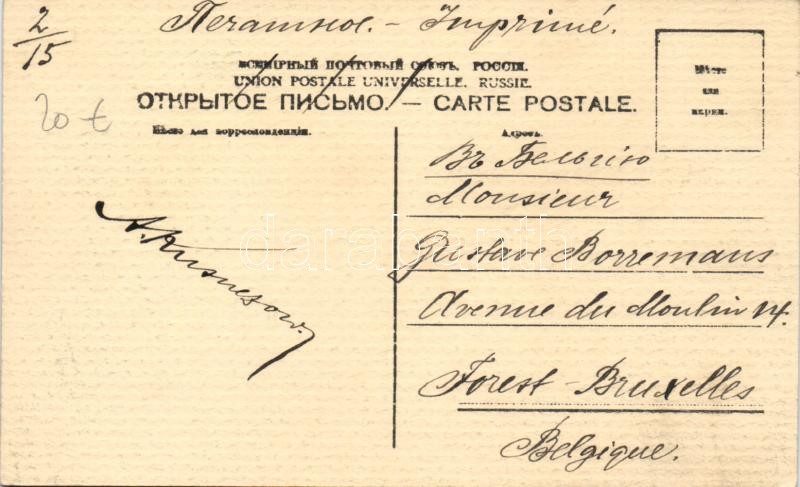 2/15
Печатное. - Imprimé.
ВСЕМІРНЫЙ ПОЧТОВЫЙ СОЮЗЪ. РОССІЯ.
UNION POSTALE UNIVERSELLE. RUSSIE.
ОТКРЫТОЕ ПИСЬМО. — CARTE POSTALE.
Мѣсто
для
марки.
20 t
Мѣсто для корреспонденціи.
Адресъ.
Въ Бельгію
Monsieur
Gustave Borremans
Avenue du Moulin 14.
Forest-Bruxelles
Belgique.
A. Kusnesow.
darabanth